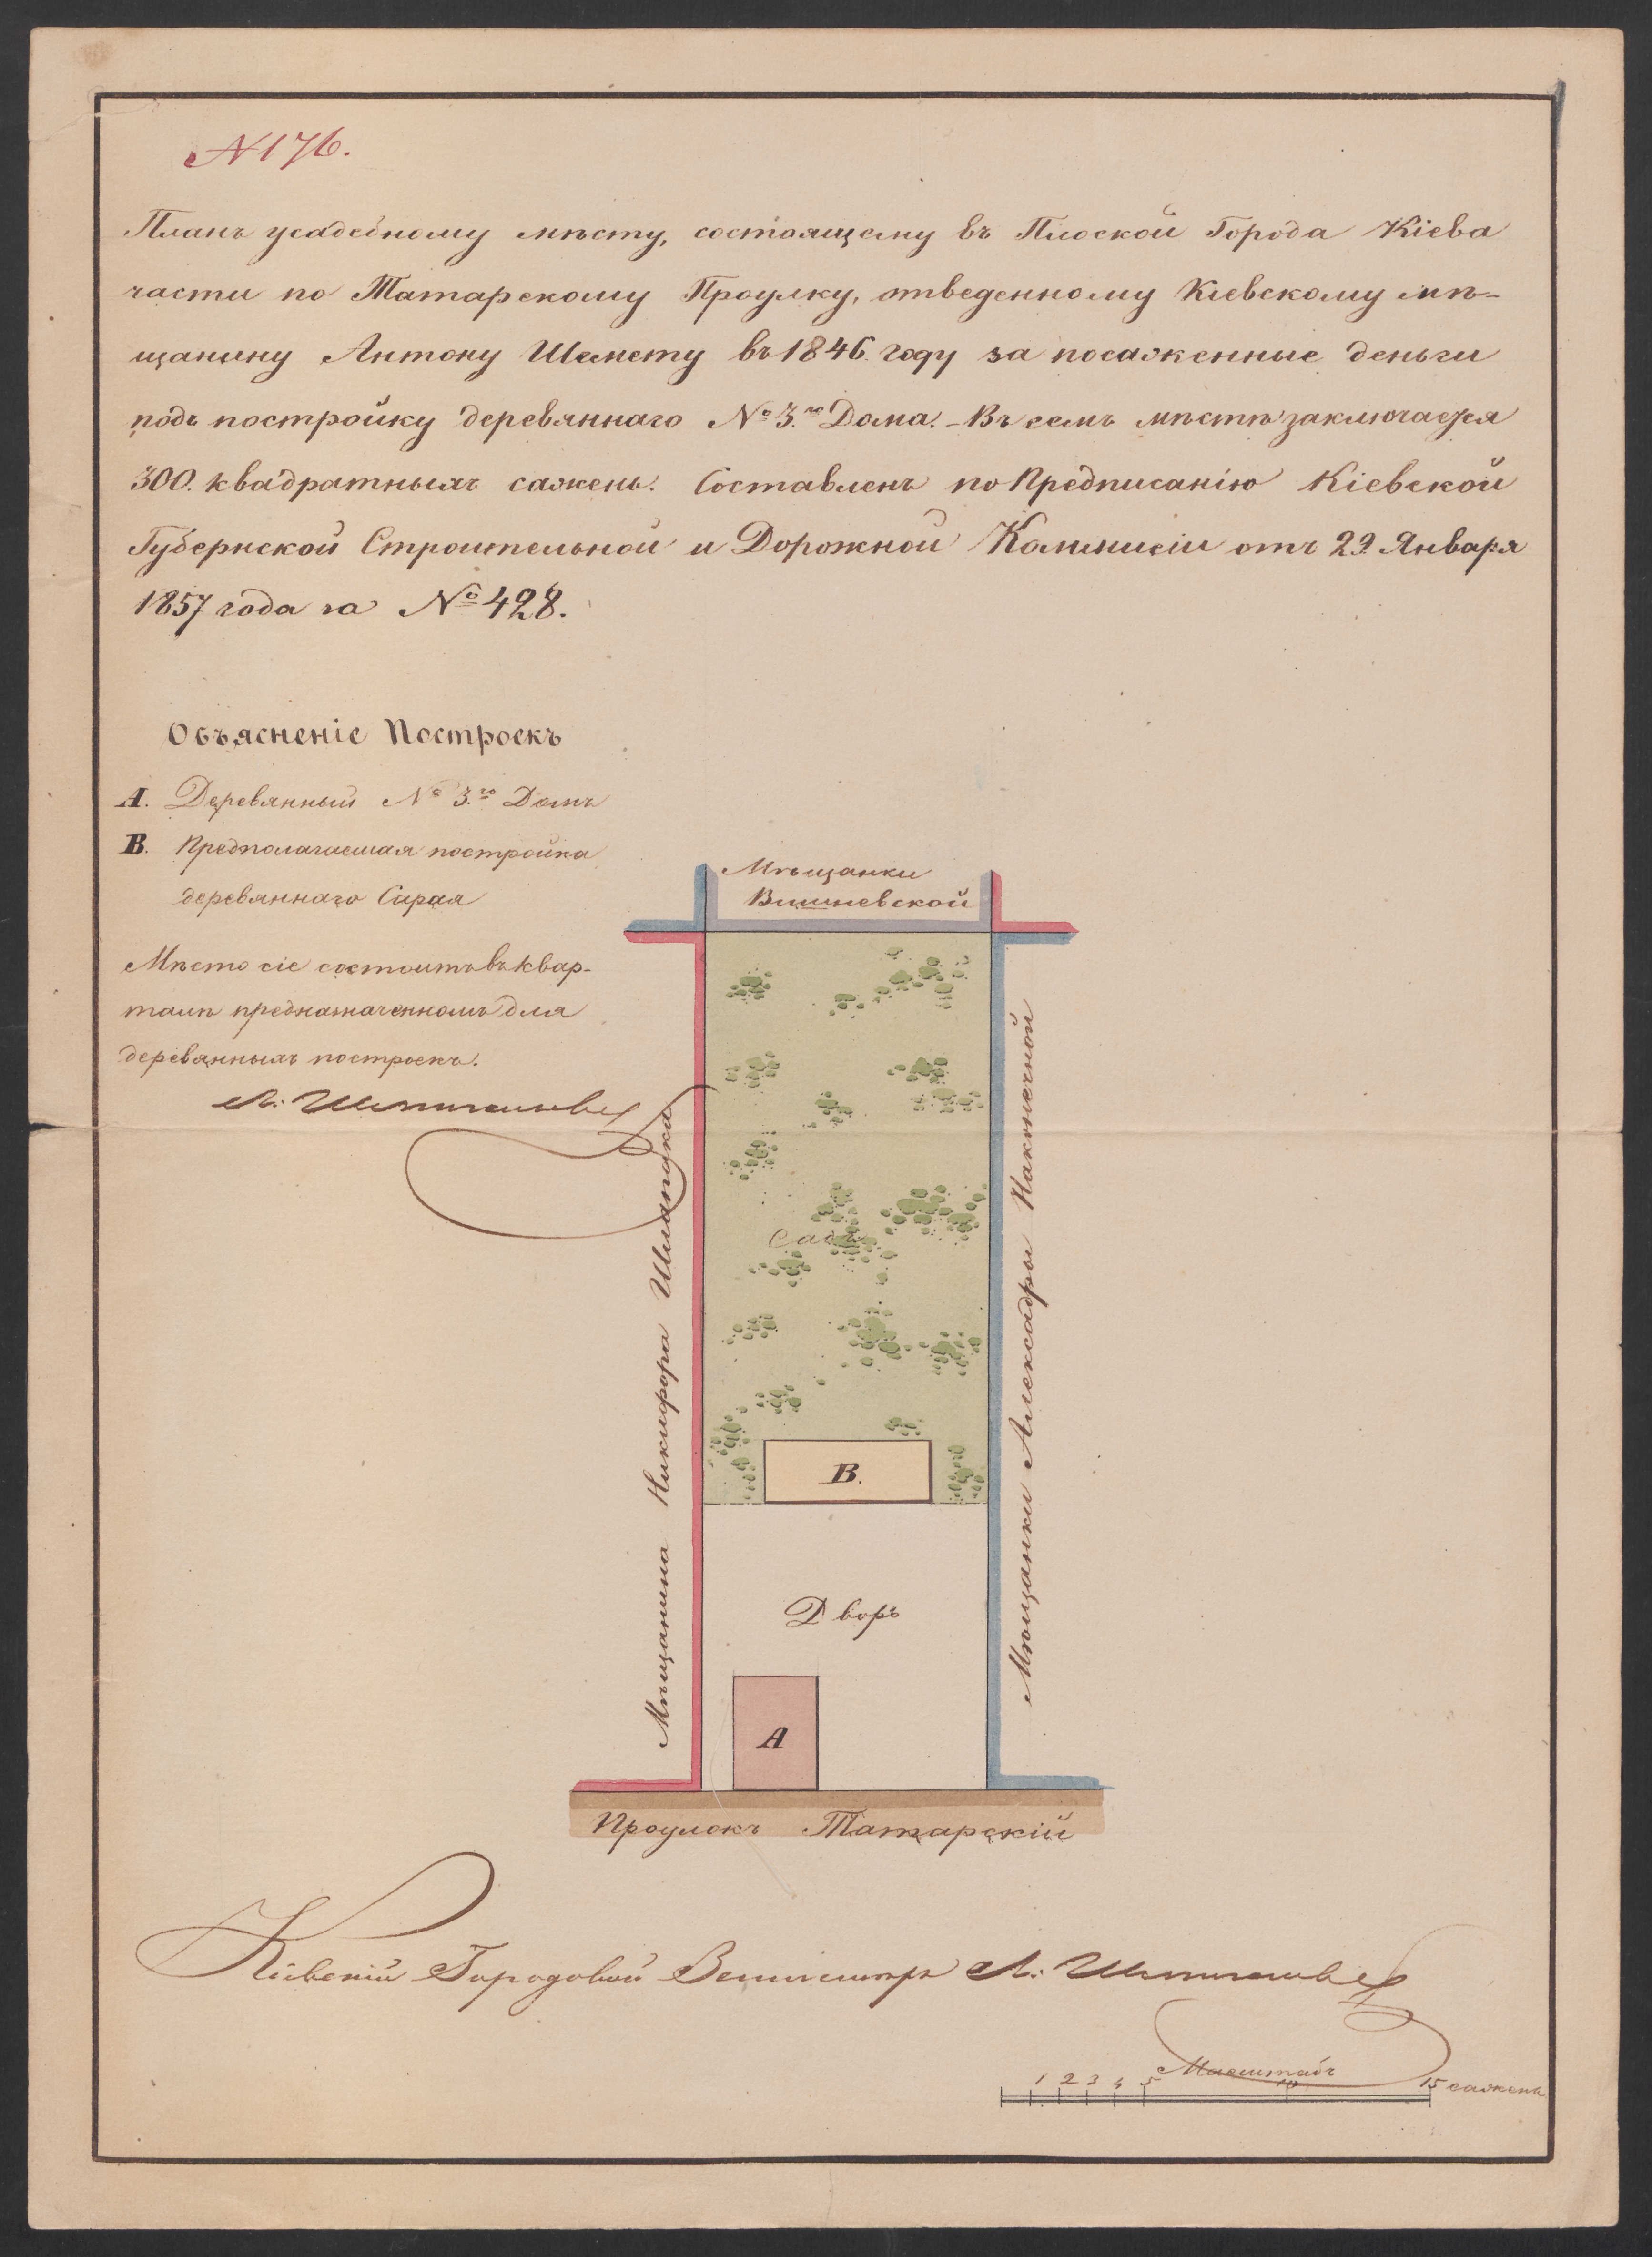 N 176.
Планъ усадебному мѣсту, состоящему въ Плоской Города Кіева
части по Татарскому Проулку, отведенному Кіевскому мѣ-
щанину Антону Шемету въ 1846. году за посаженные деньги
подъ постройку деревяннаго № 3.го Дома. - Въ семъ мѣстѣ заключается
300. квадратныхъ сажень. Составленъ по Предписанію Кіевской
Губернской Строительной и Дорожной Коммисіи отъ 29. Января
1857 года за № 428.
Объясненіе Построекъ
А. Деревянный № 3.го Домъ
В. Предполагаемая постройка
деревяннаго Сарая
Мѣсто сіе состоитъ въ квар-
талѣ предназначенномъ для
деревянныхъ построекъ.
Мѣщанки
Вишневской
Мѣщанина Никифора
Мѣщанки Алексадры Наконечной
Садъ
В.
Дворъ
А
Проулокъ Татарскій
Кіевскій Городовой
Масштабъ
1 2 3 4 5 10 15 сажень